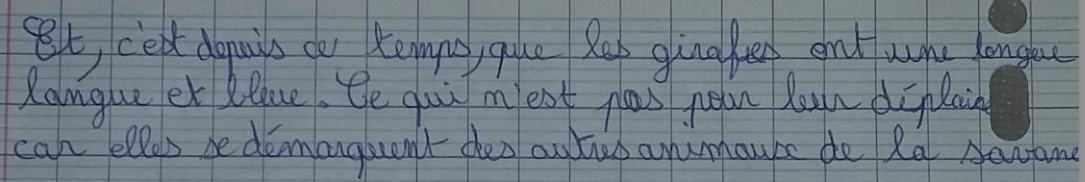 Et, c'est depuis ce temps, que les girafes ont une longue
langue et bleue. Ce qui n'est pas pour leur déplaire
car elles se démarquent des autres animaux de la savane